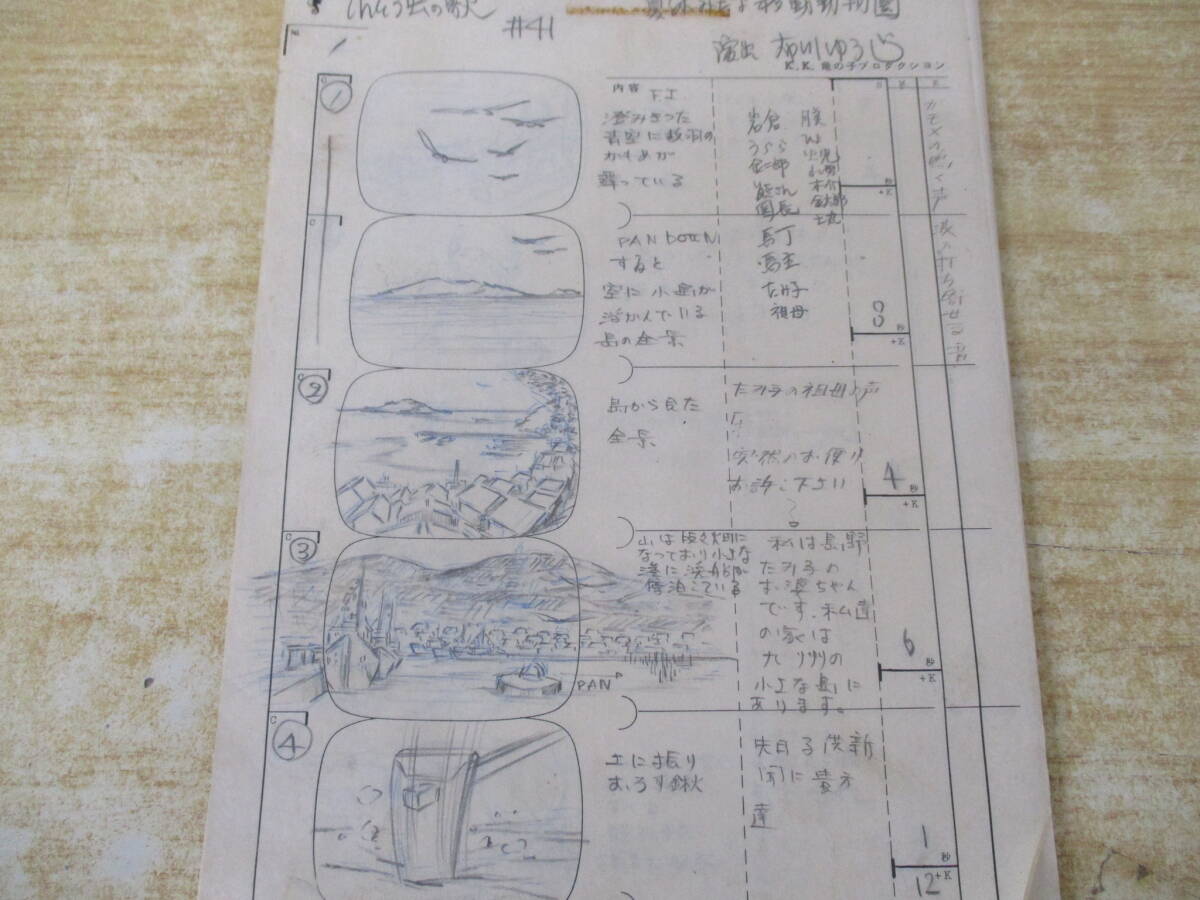 てんとう虫の歌
#41
夏休みだよ移動動物園
演出 布川ゆうじ
K.K. 竜の子プロダクション
1
C
①
内容
F.I
澄みきった
青空に数羽の
かもめが
舞っている
岩倉
うらら
金二郎
熊さん
園長
馬丁
祖母
秒
+K
カモメの鳴く声
波の打ち寄せる音
C
PAN DOWN
すると
空に小島が
浮かんでいる
島の全景
8
秒
+K
C
②
島から見た
全景
突然のお便り
お許し下さい
4
秒
+K
③
山は段々畑に
なっており小さな
港に漁船が
停泊している
PAN
私は長野
お婆ちゃん
です、私達
の家は
九州の
小さな島に
あります。
6
秒
+K
C
④
土に振り
おろす鍬
先日子供新
聞に貴方
達
1
秒
12
+K